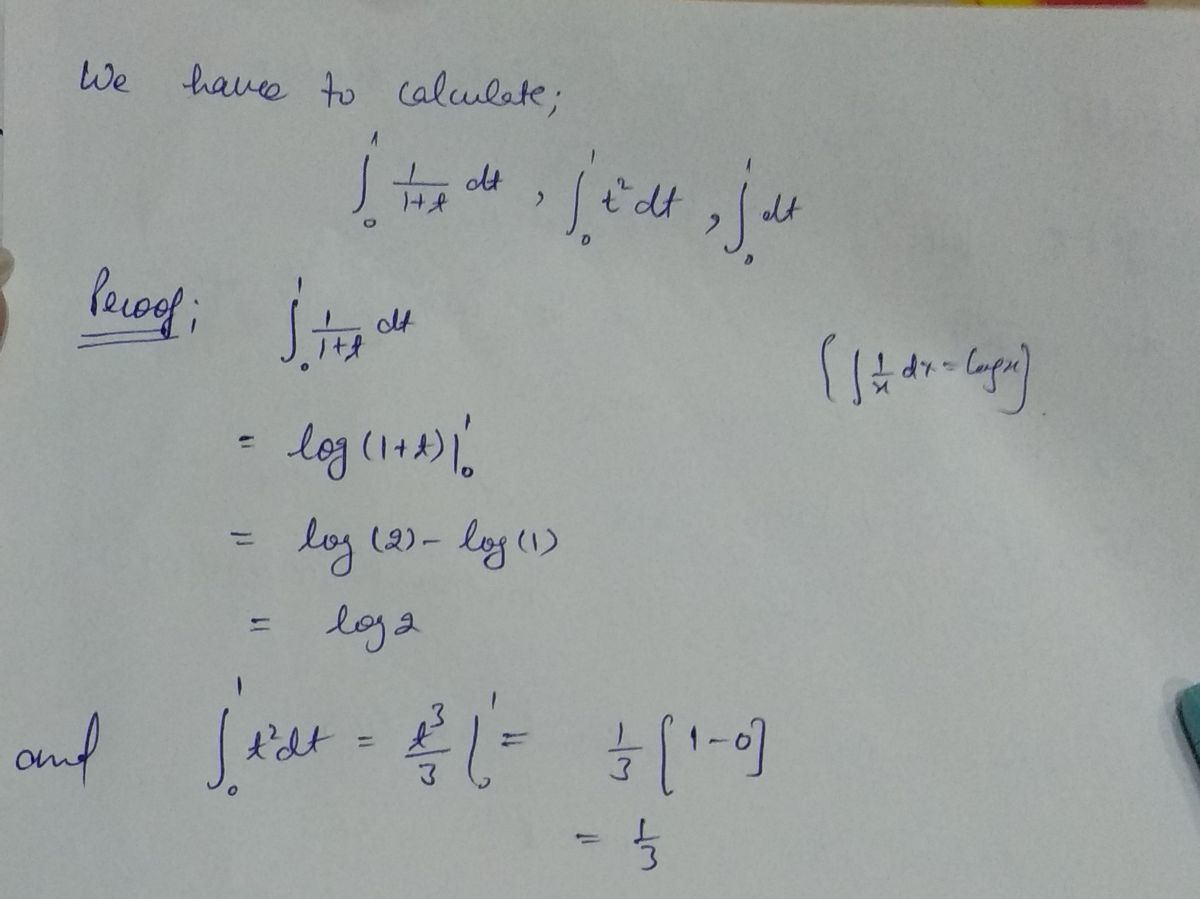 We have to calculate;
∫₀¹ 1/(1+t) dt , ∫₀¹ t² dt , ∫₀¹ dt
Proof; ∫₀¹ 1/(1+t) dt
[∫ 1/x dx = log x]
= log (1+t)|₀¹
= log (2) - log (1)
= log 2
and ∫₀¹ t² dt = t³/3 |₀¹ = 1/3 [1-0]
= 1/3